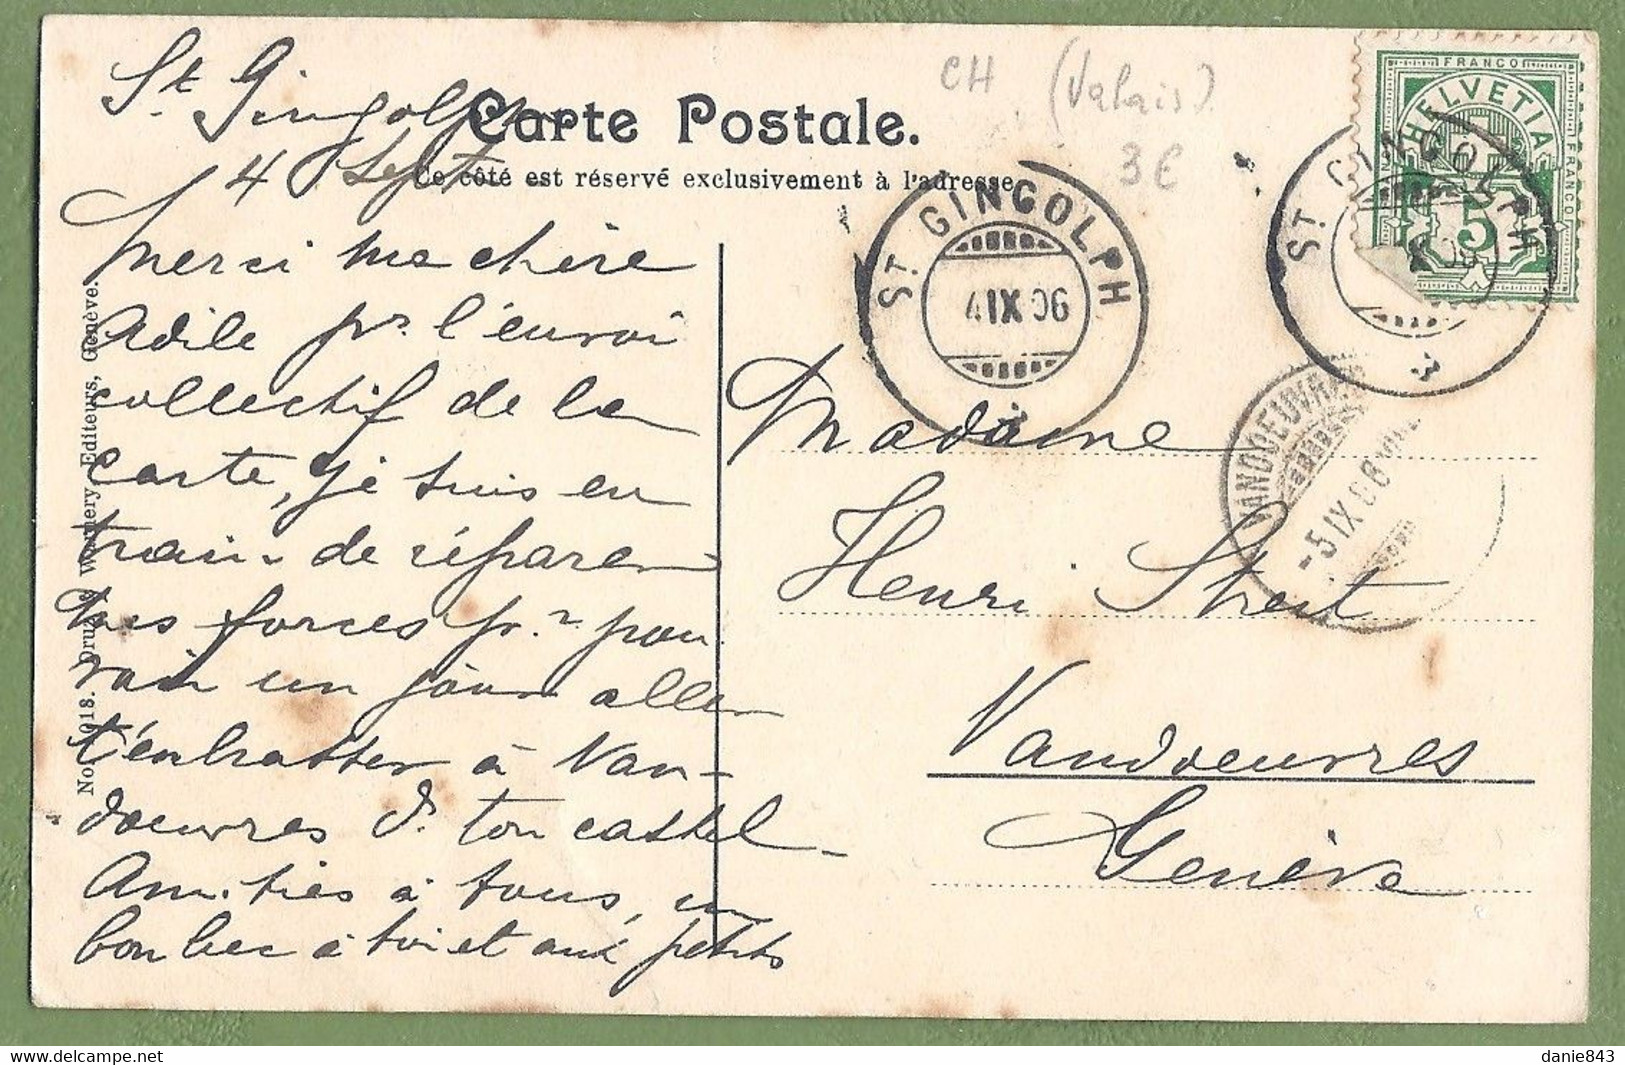 St Gingolph
4 Sept
CH (Valais)
3€
Carte Postale.
Ce côté est réservé exclusivement à l'adresse.
Merci ma chère
Adèle pr. l'envoi
collectif de la
carte, je suis en
train de réparer
mes forces pr. pou
voir un jour aller
t'embrasser à Van-
doeuvres ds. ton castel
Amitiés à tous, un
bon bec à toi et aux petits
FRANCO
HELVETIA
FRANCO
FRANCO
5
ST. GINGOLPH
4 IX 06
ST. GINGOLPH
IX 06
VANDOEUVRES
-5 IX 06
Madame
Henri Streit
Vandoeuvres
Genève
Editeurs, Genève.
danie843